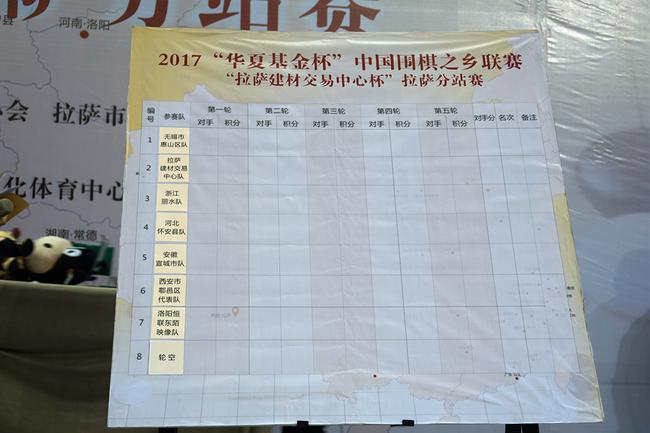 分站赛
河南·洛阳
拉萨市
化体育中心
湖南·常德
2017“华夏基金杯”中国围棋之乡联赛
“拉萨建材交易中心杯”拉萨分站赛
编号 参赛队 第一轮 第二轮 第三轮 第四轮 第五轮 对手分 名次 备注
对手 积分 对手 积分 对手 积分 对手 积分 对手 积分
1 无锡市
惠山区队
2 拉萨
建材交易
中心队
3 浙江
丽水队
4 河北
怀安县队
5 安徽
宣城市队
6 西安市
鄠邑区
代表队
7 洛阳恒
联东陌
映像队
8 轮空